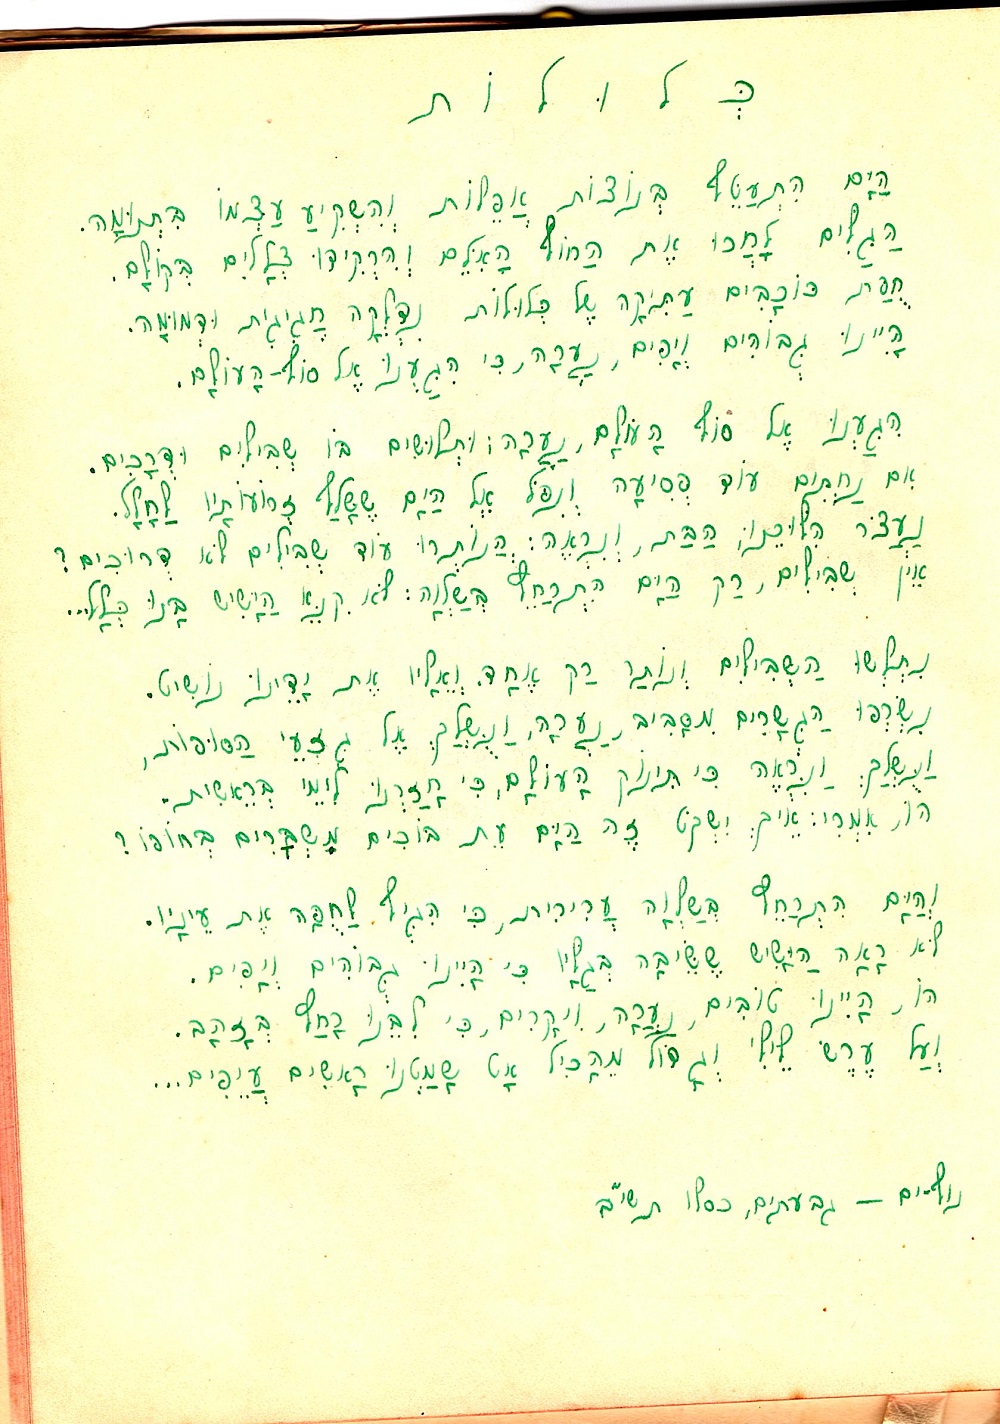 כְּלוּלוֹת
הַיָּם הִתְעַטֵּף בְּנוֹצוֹת אֲפֵלוֹת וְהִשְׁקִיעַ עַצְמוֹ בִּתְנוּמָה.
הַגַּלִּים לָחֲכוּ אֶת הַחוֹף הָאִלֵּם וְהִרְקִידוּ צְלָלִים בְּקוֹלָם.
חֻפַּת כּוֹכָבִים עַתִּיקָה שֶׁל כְּלוּלוֹת נִדְלְקָה חֲגִיגִית וּדְמוּמָה.
הָיִינוּ גְּבוֹהִים וְיָפִים, נַעֲרָה, כִּי הִגַּעְנוּ אֶל סוֹף-הָעוֹלָם.
הִגַּעְנוּ אֶל סוֹף הָעוֹלָם, נַעֲרָה; וּתְלוּשִׁים בּוֹ שְׁבִילִים וּדְרָכִים.
אִם נַחְתִּים עוֹד פְּסִיעָה וְנִפֹּל אֶל הַיָּם שֶׁשָּׁלַף זְרוֹעוֹתָיו לֶחָלָל.
נַעֲצֹר הִלּוּכֵנוּ, הַבַּת, וְנִרְאֶה: הֲנוֹתְרוּ עוֹד שְׁבִילִים לֹא דְּרוּכִים?
אֵין שְׁבִילִים, רַק הַיָּם הִתְרַחֵף בְּשַׁלְוָה: לֹא קִנֵּא הַיָּשִׁישׁ בָּנוּ כְּלָל...
נִתְלְשׁוּ הַשְּׁבִילִים וְנוֹתַר רַק אֶחָד. וְאֵלָיו אֶת יָדֵינוּ נוֹשִׁיט.
נִשְׂרְפוּ הַגְּשָׁרִים מִסָּבִיב, נַעֲרָה, וַנֻּשְׁלַךְ אֶל גִּזְעֵי הַסּוּפוֹת,
וַנֻּשְׁלַךְ וַנִּרְאֶה כִּי תִּינוֹק הָעוֹלָם, כִּי חָזַרְנוּ לִימֵי בְּרֵאשִׁית.
הוֹ, אִמְרִי: אֵיךְ יִשְׁקֹט זֶה הַיָּם עֵת בּוֹכִים מִשְׁבָּרִים בְּחוֹפוֹ?
וְהַיָּם הִתְרַחֵף בְּשַׁלְוָה עֲרִירִית, כִּי הִגִּיף לַחֻפָּה אֶת עֵינָיו.
לֹא רָאָה הַיָּשִׁישׁ שֶׁשֵּׂיבָה בְּגַלָּיו כִּי הָיִינוּ גְּבוֹהִים וְיָפִים.
הוֹ, הָיִינוּ טוֹבִים, נַעֲרָה, וִיקָרִים, כִּי לִבֵּנוּ רָחַף בְּזָהָב.
וְעַל עֶרֶשׂ לֵילִי וְגָדוֹל מֵהָכִיל אָט שָׁמַטְנוּ רָאשִׁים עֲיֵפִים...
נוף-ים – גבעתיים, כסלו תשי"ב